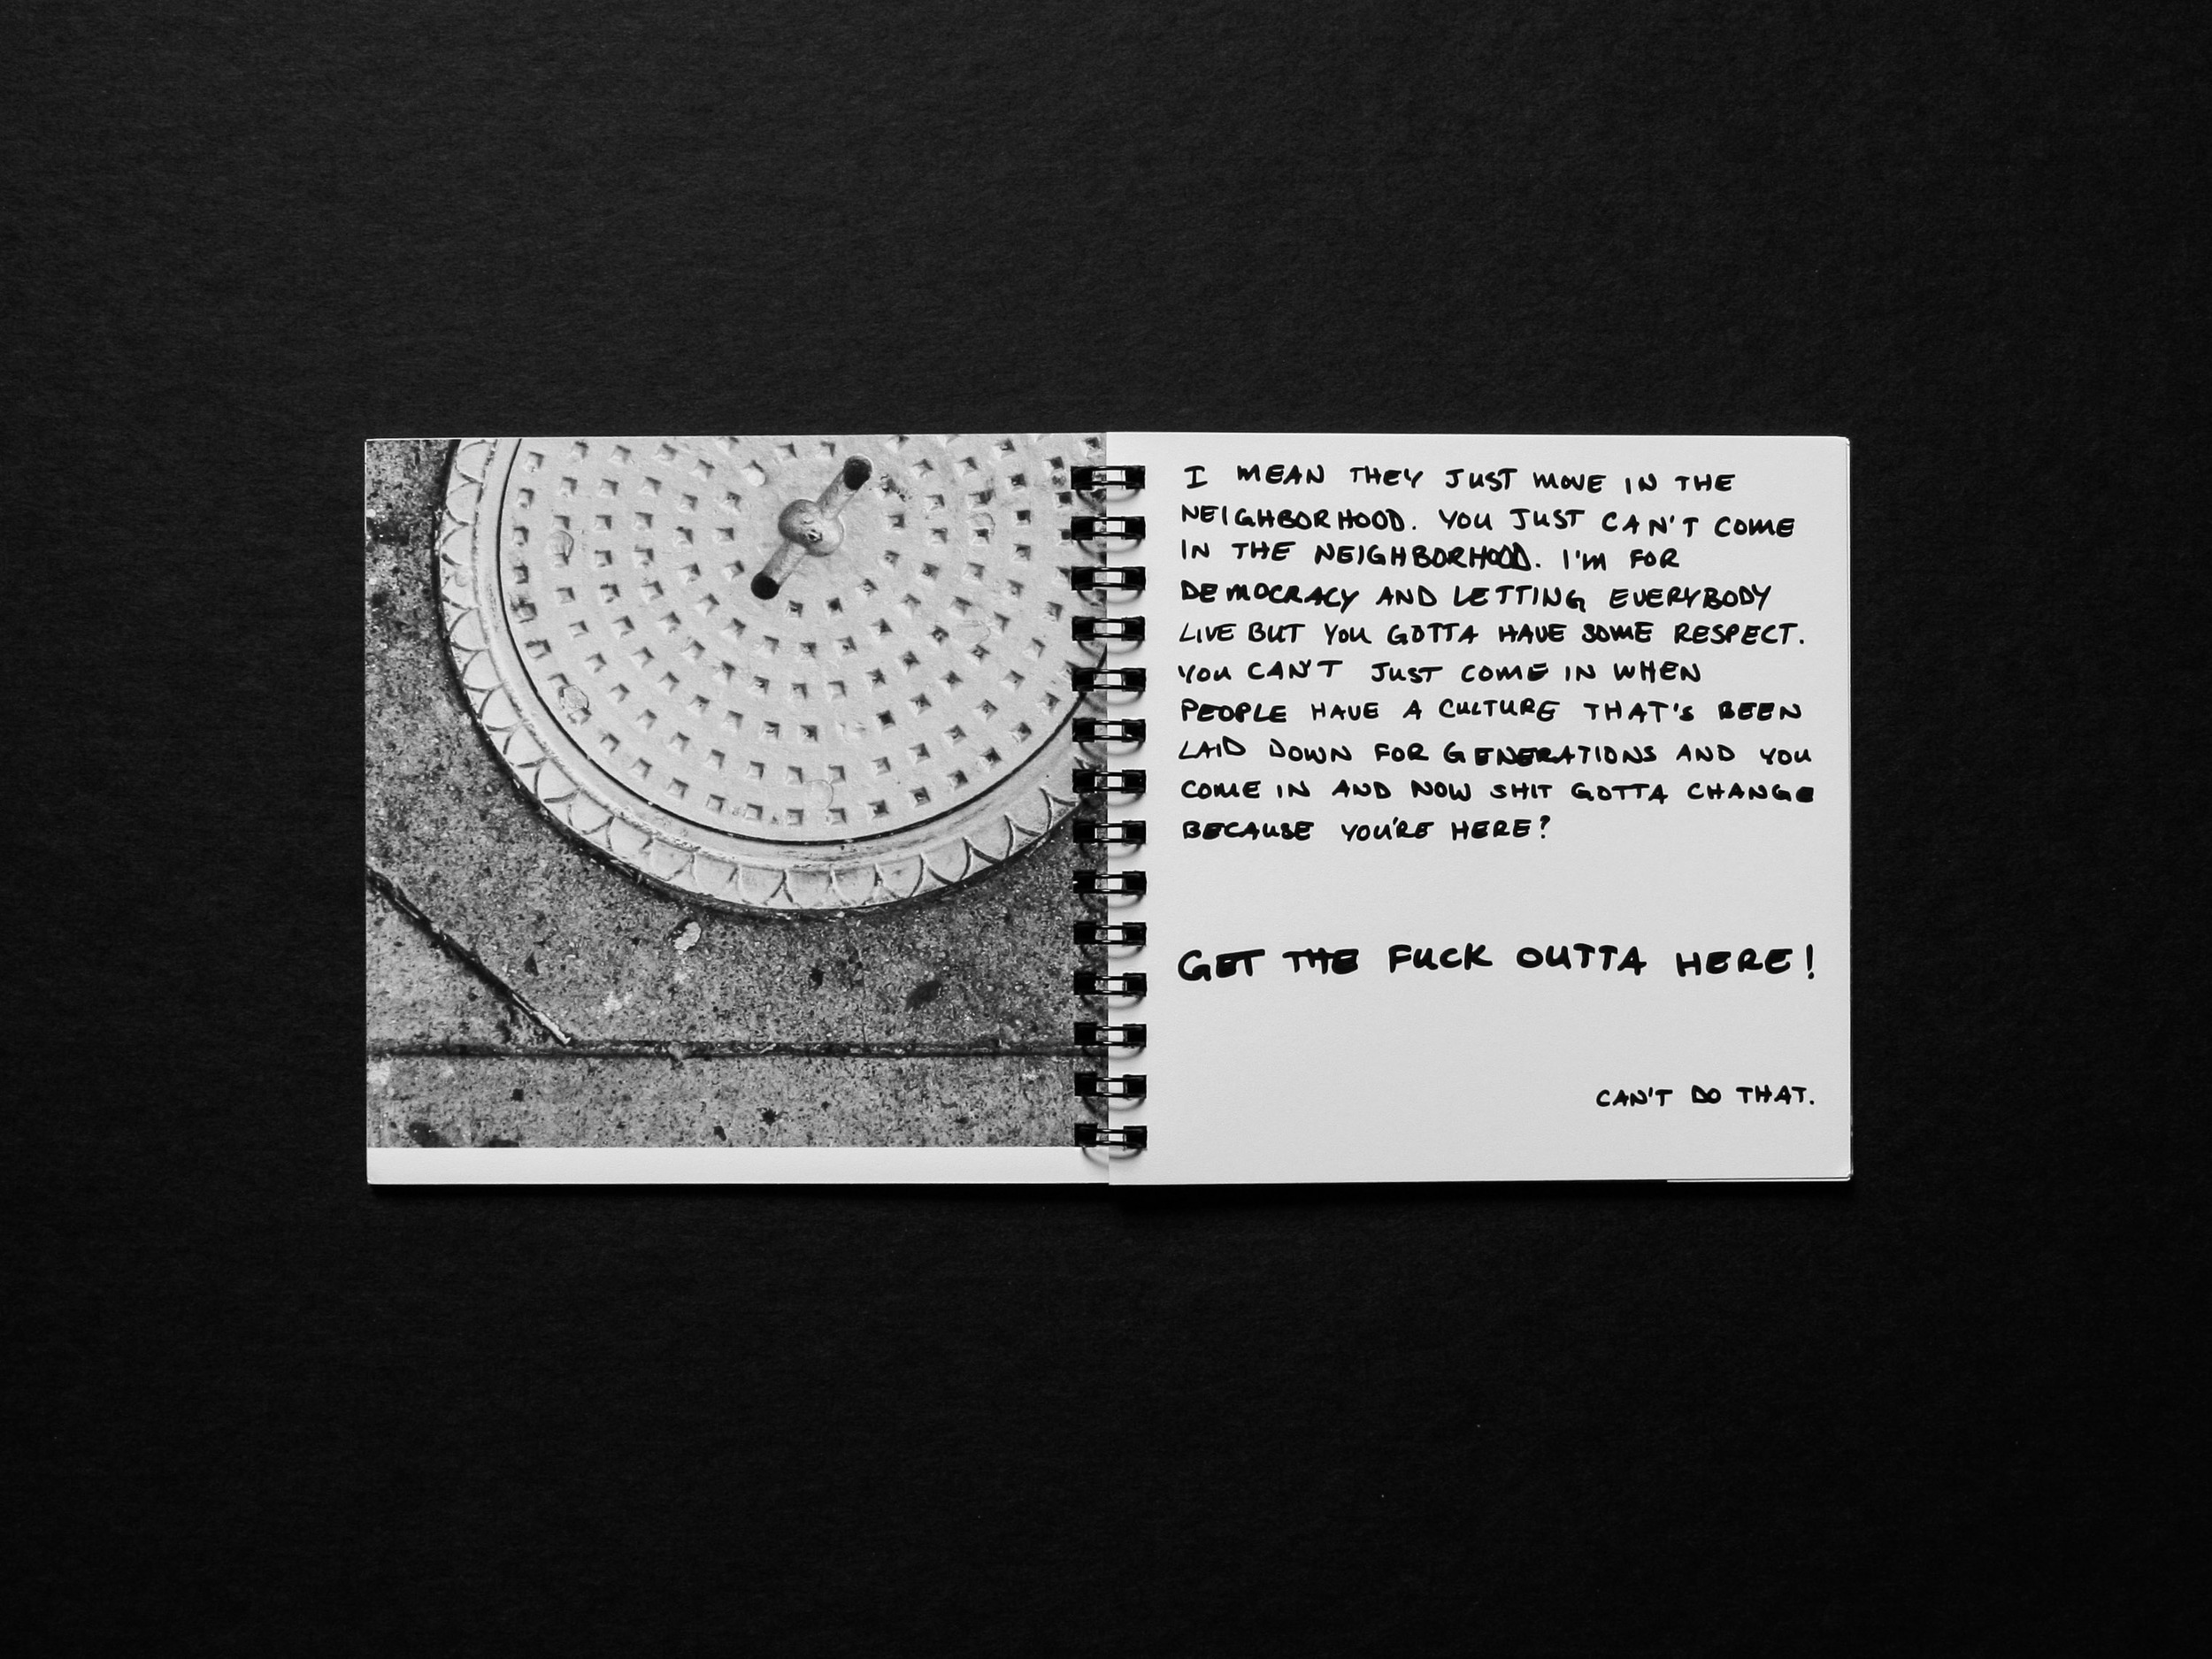 I MEAN THEY JUST MOVE IN THE
NEIGHBORHOOD. YOU JUST CAN'T COME
IN THE NEIGHBORHOOD. I'M FOR
DEMOCRACY AND LETTING EVERYBODY
LIVE BUT YOU GOTTA HAVE SOME RESPECT.
YOU CAN'T JUST COME IN WHEN
PEOPLE HAVE A CULTURE THAT'S BEEN
LAID DOWN FOR GENERATIONS AND YOU
COME IN AND NOW SHIT GOTTA CHANGE
BECAUSE YOU'RE HERE?
GET THE FUCK OUTTA HERE!
CAN'T DO THAT.